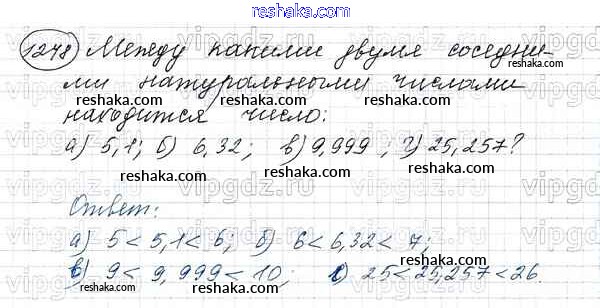 reshaka.com
1248 Между какими двумя соседни-
reshaka.com reshaka.com
ми натуральными числами
reshaka.com reshaka.com
находится число:
а) 5,1; б) 6,32; в) 9,999; г) 25,257?
reshaka.com reshaka.com
Ответ:
а) 5<5,1<6; б) 6<6,32<7;
reshaka.com reshaka.com
в) 9<9,999<10; г) 25<25,257<26.
reshaka.com reshaka.com